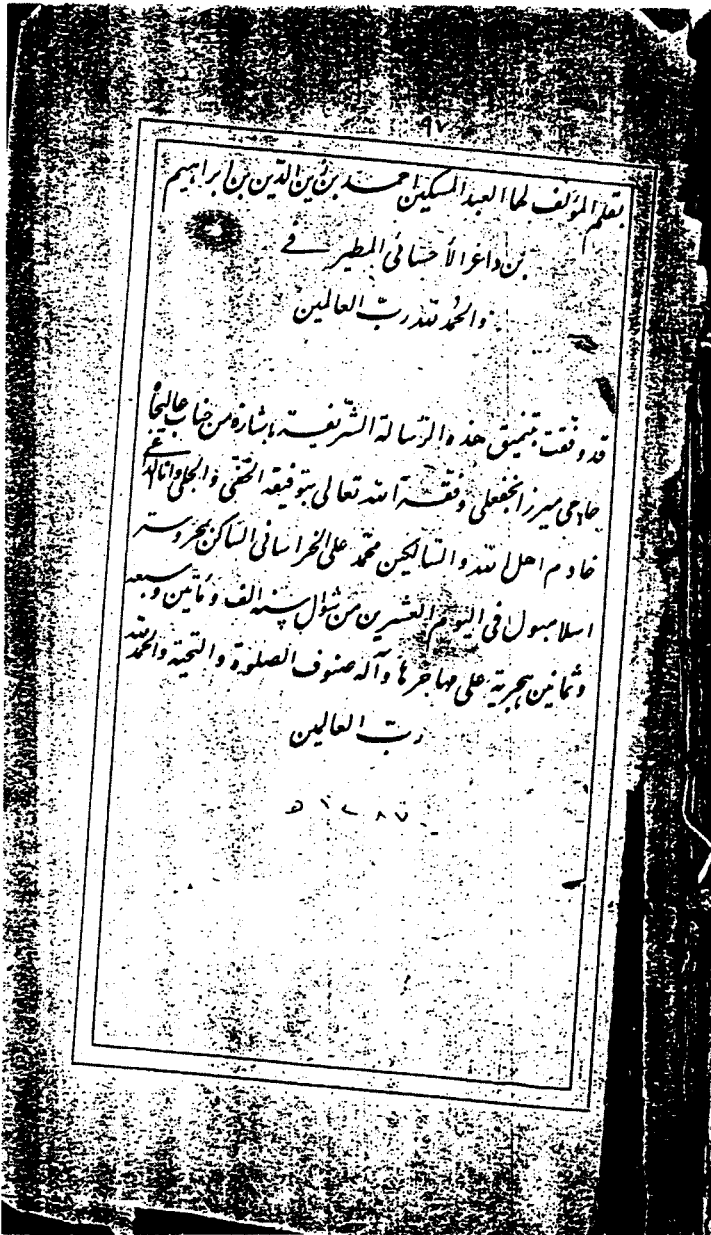 ٩٧
بقلم المؤلف لها العبد المسكين احمد بن زين الدين بن ابراهيم
بن داغر الأحسائي المطيرفي
والحمد لله رب العالمين
قد وفقت بتنميق هذه الرسالة الشريفة باشارة من جناب عاليجاه
حاجي ميرزا نجفعلي وفقه الله تعالى بتوفيقه الخفي والجلي وانا
خادم اهل الله والسالكين محمد علي الخراساني الساكن بمحروسة
اسلامبول في اليوم العشرين من شوال سنه الف ومأتين وسبعه
وثمانين هجرية على مهاجرها وآله صنوف الصلوة والتحية والحمد لله
رب العالمين
١٢٨٧ ه